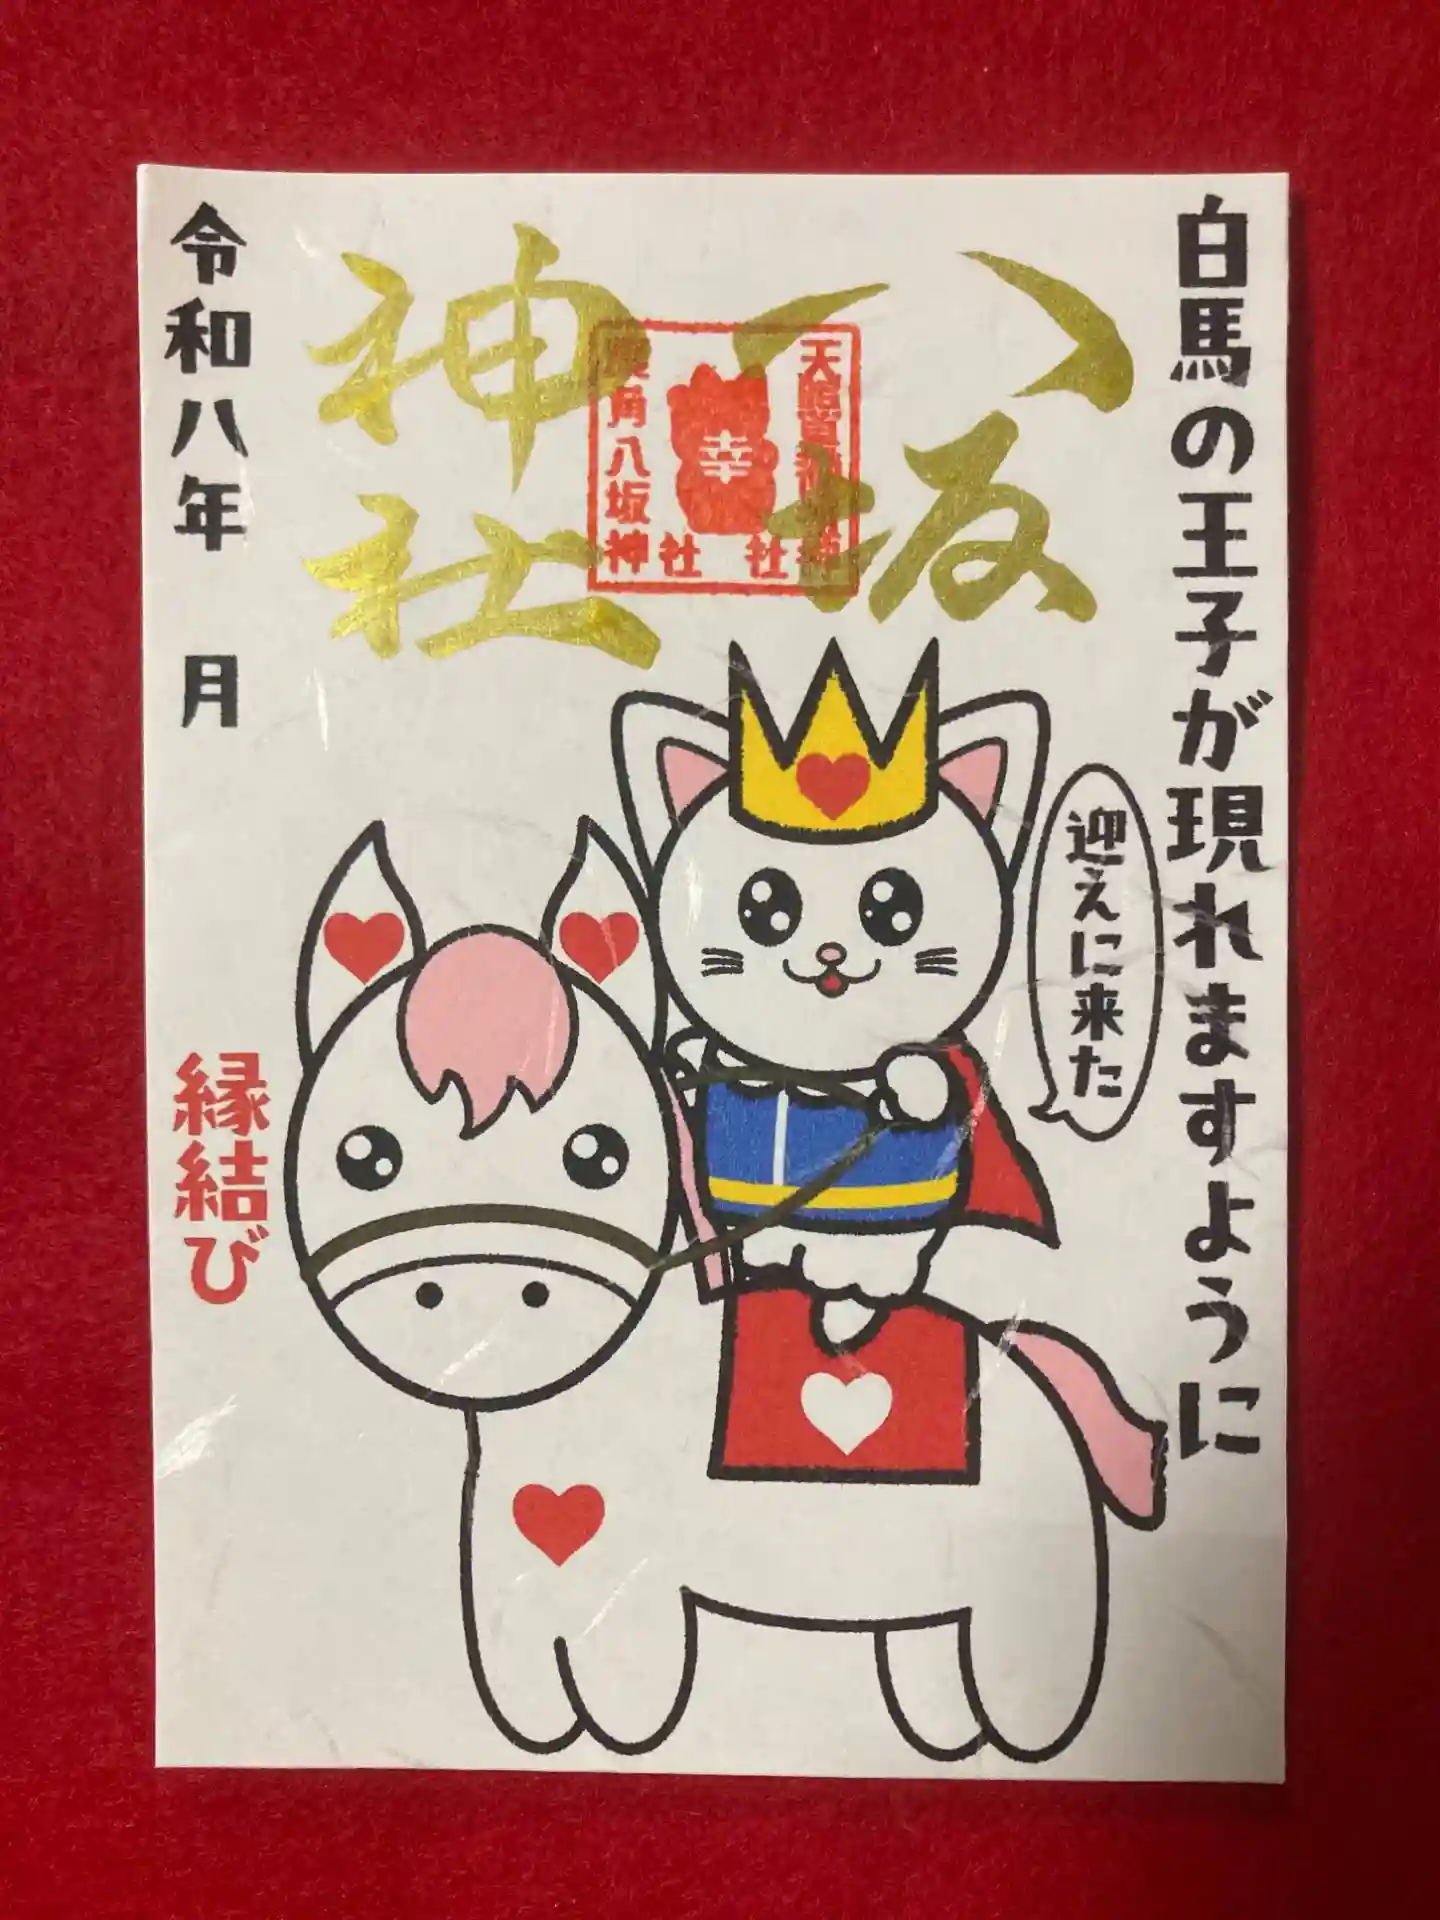 白馬の王子が現れますように
八坂
神社
幸
角八坂
神社
迎えに来た
令和八年 月
縁結び